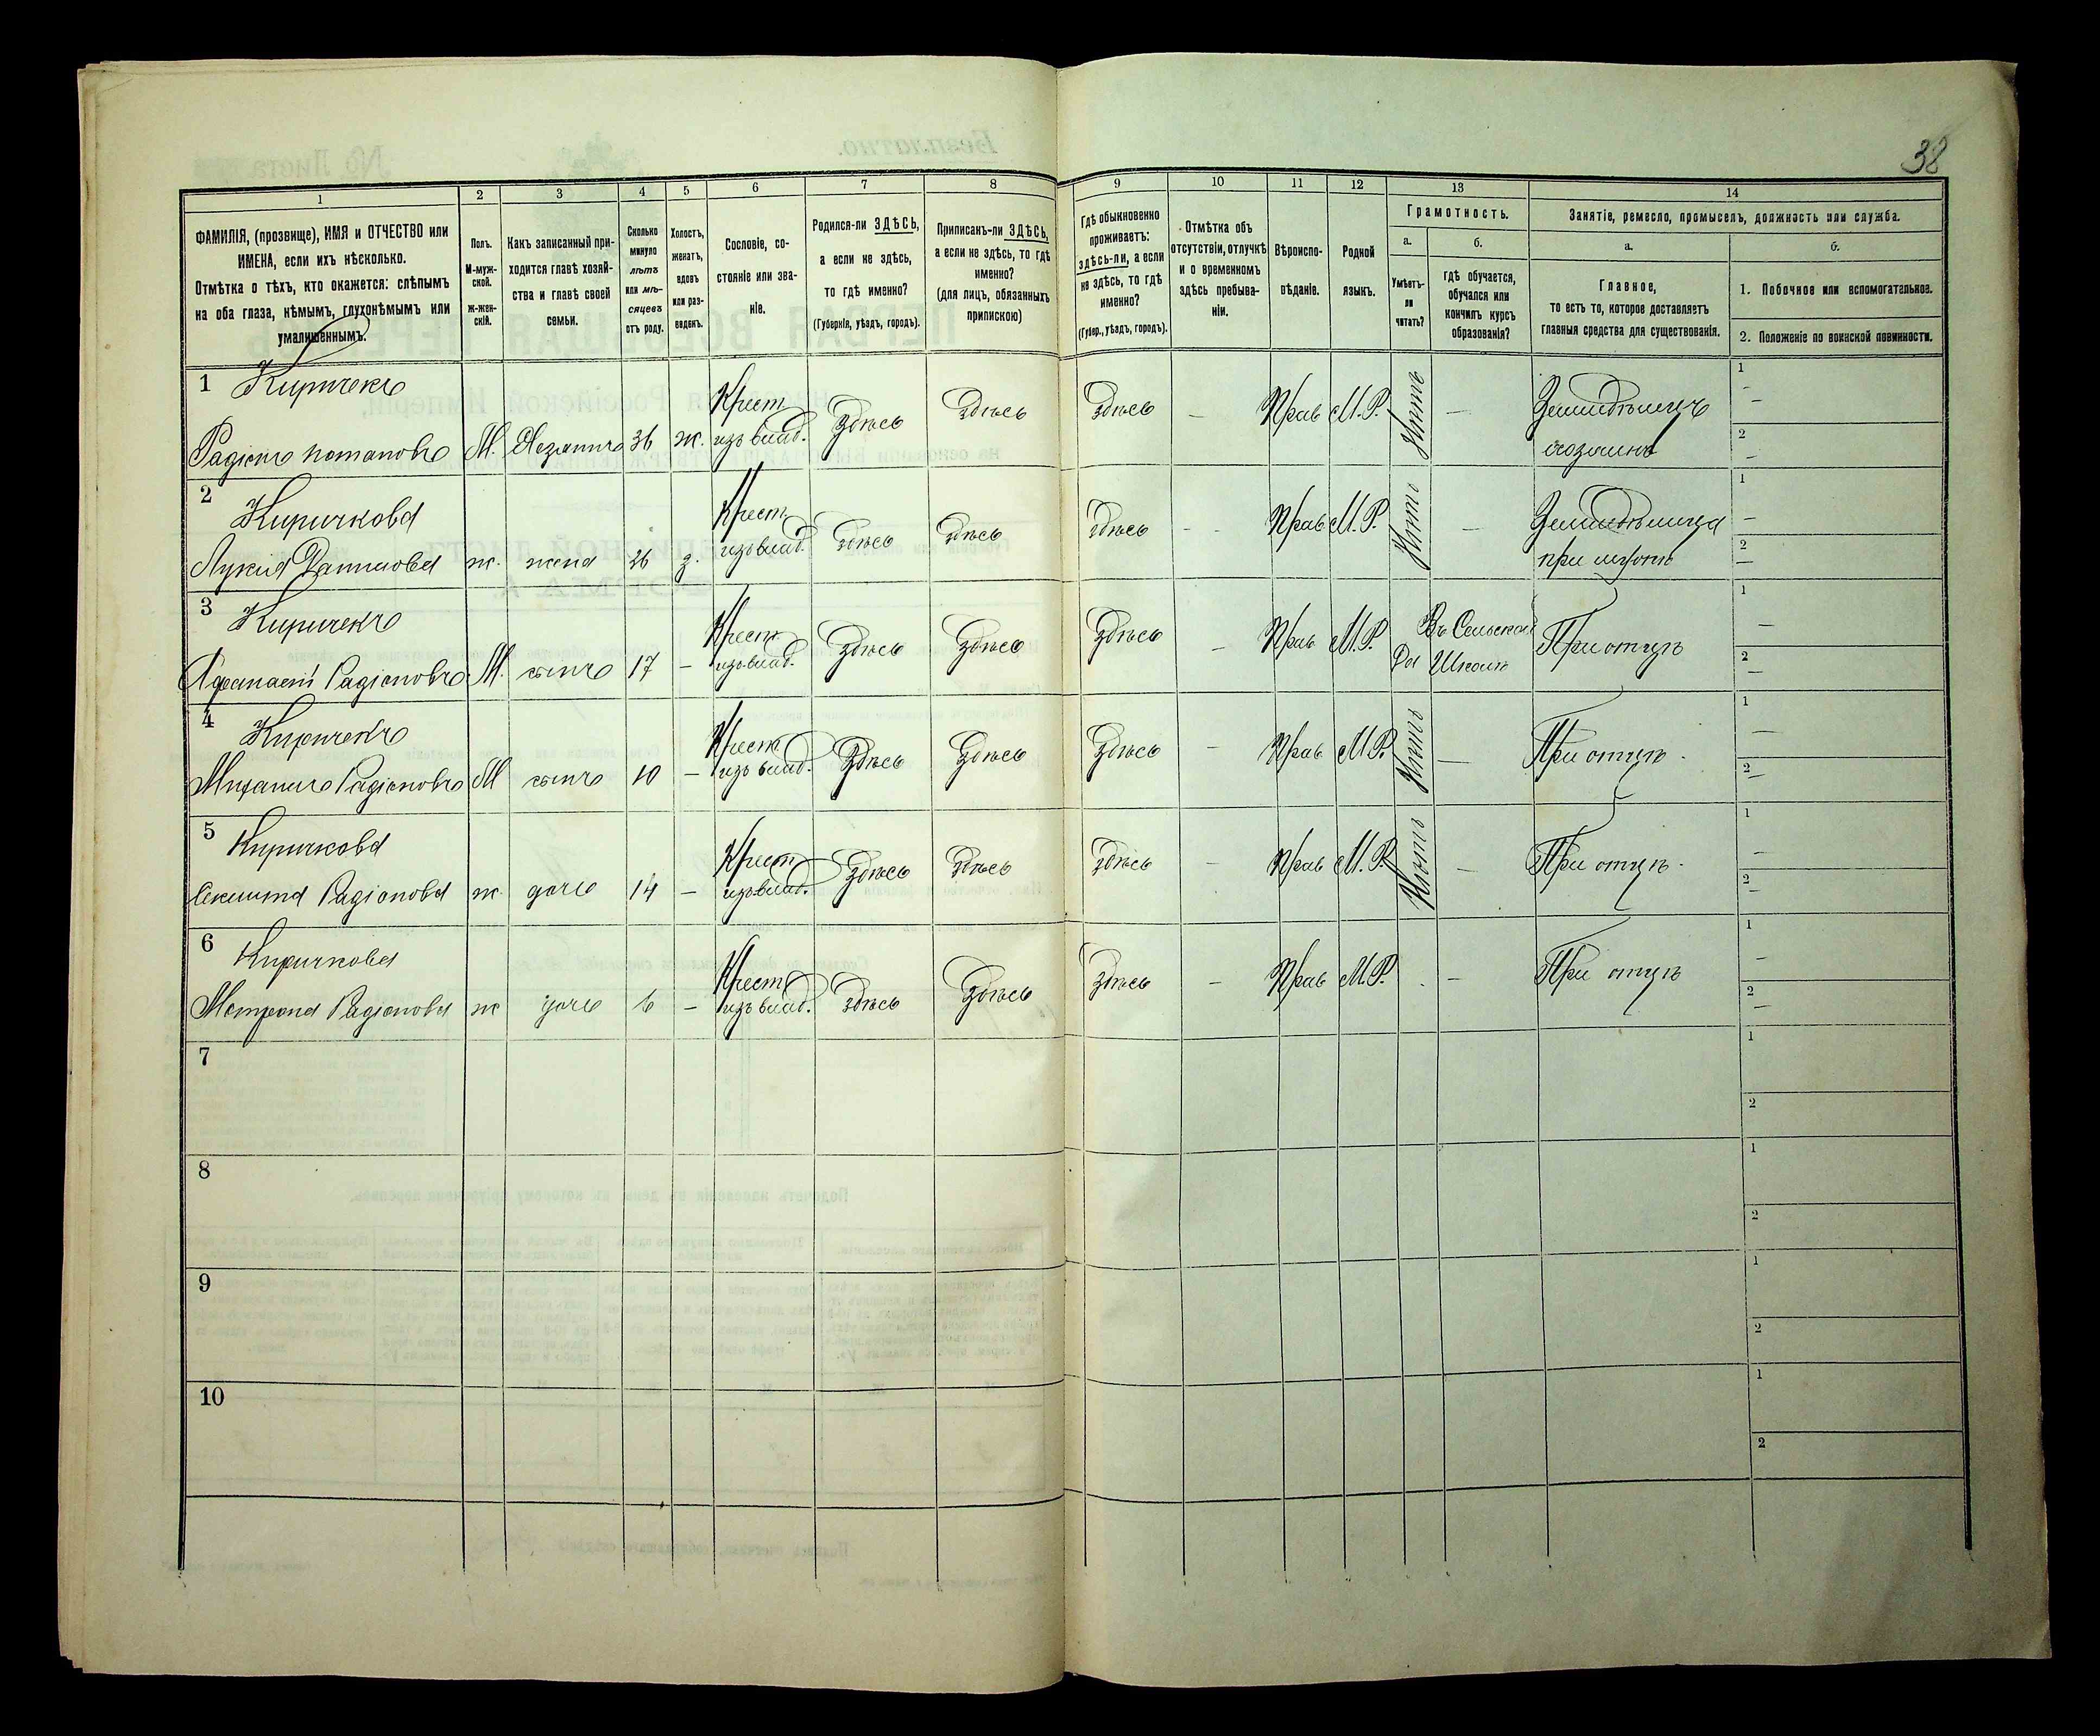 38
1 2 3 4 5 6 7 8 9 10 11 12 13 14
ФАМИЛІЯ, (прозвище), ИМЯ и ОТЧЕСТВО или
ИМЕНА, если ихъ нѣсколько.
Отмѣтка о тѣхъ, кто окажется: слѣпымъ
на оба глаза, нѣмымъ, глухонѣмымъ или
умалишеннымъ.
Полъ.
М-муж-
ской.
ж-жен-
скій.
Какъ записанный при-
ходится главѣ хозяй-
ства и главѣ своей
семьи.
Сколько
минуло
лѣтъ
или мѣ-
сяцевъ
отъ роду.
Холостъ,
женатъ,
вдовъ
или раз-
веденъ.
Сословіе, со-
стояніе или зва-
ніе.
Родился-ли ЗДѢСЬ,
а если не здѣсь,
то гдѣ именно?
(Губернія, уѣздъ, городъ).
Приписанъ-ли ЗДѢСЬ,
а если не здѣсь, то гдѣ
именно?
(для лицъ, обязанныхъ
припискою)
Гдѣ обыкновенно
проживаетъ:
здѣсь-ли, а если
не здѣсь, то гдѣ
именно?
(Губер., уѣздъ, городъ).
Отмѣтка объ
отсутствіи, отлучкѣ
и о временномъ
здѣсь пребыва-
ніи.
Вѣроиспо-
вѣданіе.
Родной
языкъ.
Грамотность.
а.
Умѣетъ-
ли
читать?
б.
гдѣ обучается,
обучался или
кончилъ курсъ
образованія?
Занятіе, ремесло, промыселъ, должность или служба.
а.
Главное,
то есть то, которое доставляетъ
главныя средства для существованія.
б.
1. Побочное или вспомогательное.
2. Положеніе по воинской повинности.
1 Киричекъ
Радіонъ Потаповъ М. Хозяинъ 36 ж. Крест. изъ влад. Здѣсь Здѣсь Здѣсь — Прав М.Р. Нѣтъ — Земледѣлецъ
хозяинъ
2 Киричкова
Лукия Даниловна ж. жена 36 з. Крест. изъ влад. Здѣсь Здѣсь Здѣсь — Прав М.Р. Нѣтъ — Земледѣлица
при мужѣ
3 Киричекъ
Афанасій Радіоновъ М. сынъ 17 — Крест. изъ влад. Здѣсь Здѣсь Здѣсь — Прав М.Р. Да Въ Сельской Школѣ При отцѣ
4 Киричекъ
Михаилъ Радіоновъ М сынъ 10 — Крест. изъ влад. Здѣсь Здѣсь Здѣсь — Прав М.Р. Нѣтъ — При отцѣ
5 Киричкова
Радіонова ж. дочь 14 — Крест. изъ влад. Здѣсь Здѣсь Здѣсь — Прав М.Р. Нѣтъ — При отцѣ
6 Киричкова
Мотрона Радіонова ж дочь 6 — Крест. изъ влад. Здѣсь Здѣсь Здѣсь — Прав М.Р. — При отцѣ
7
8
9
10